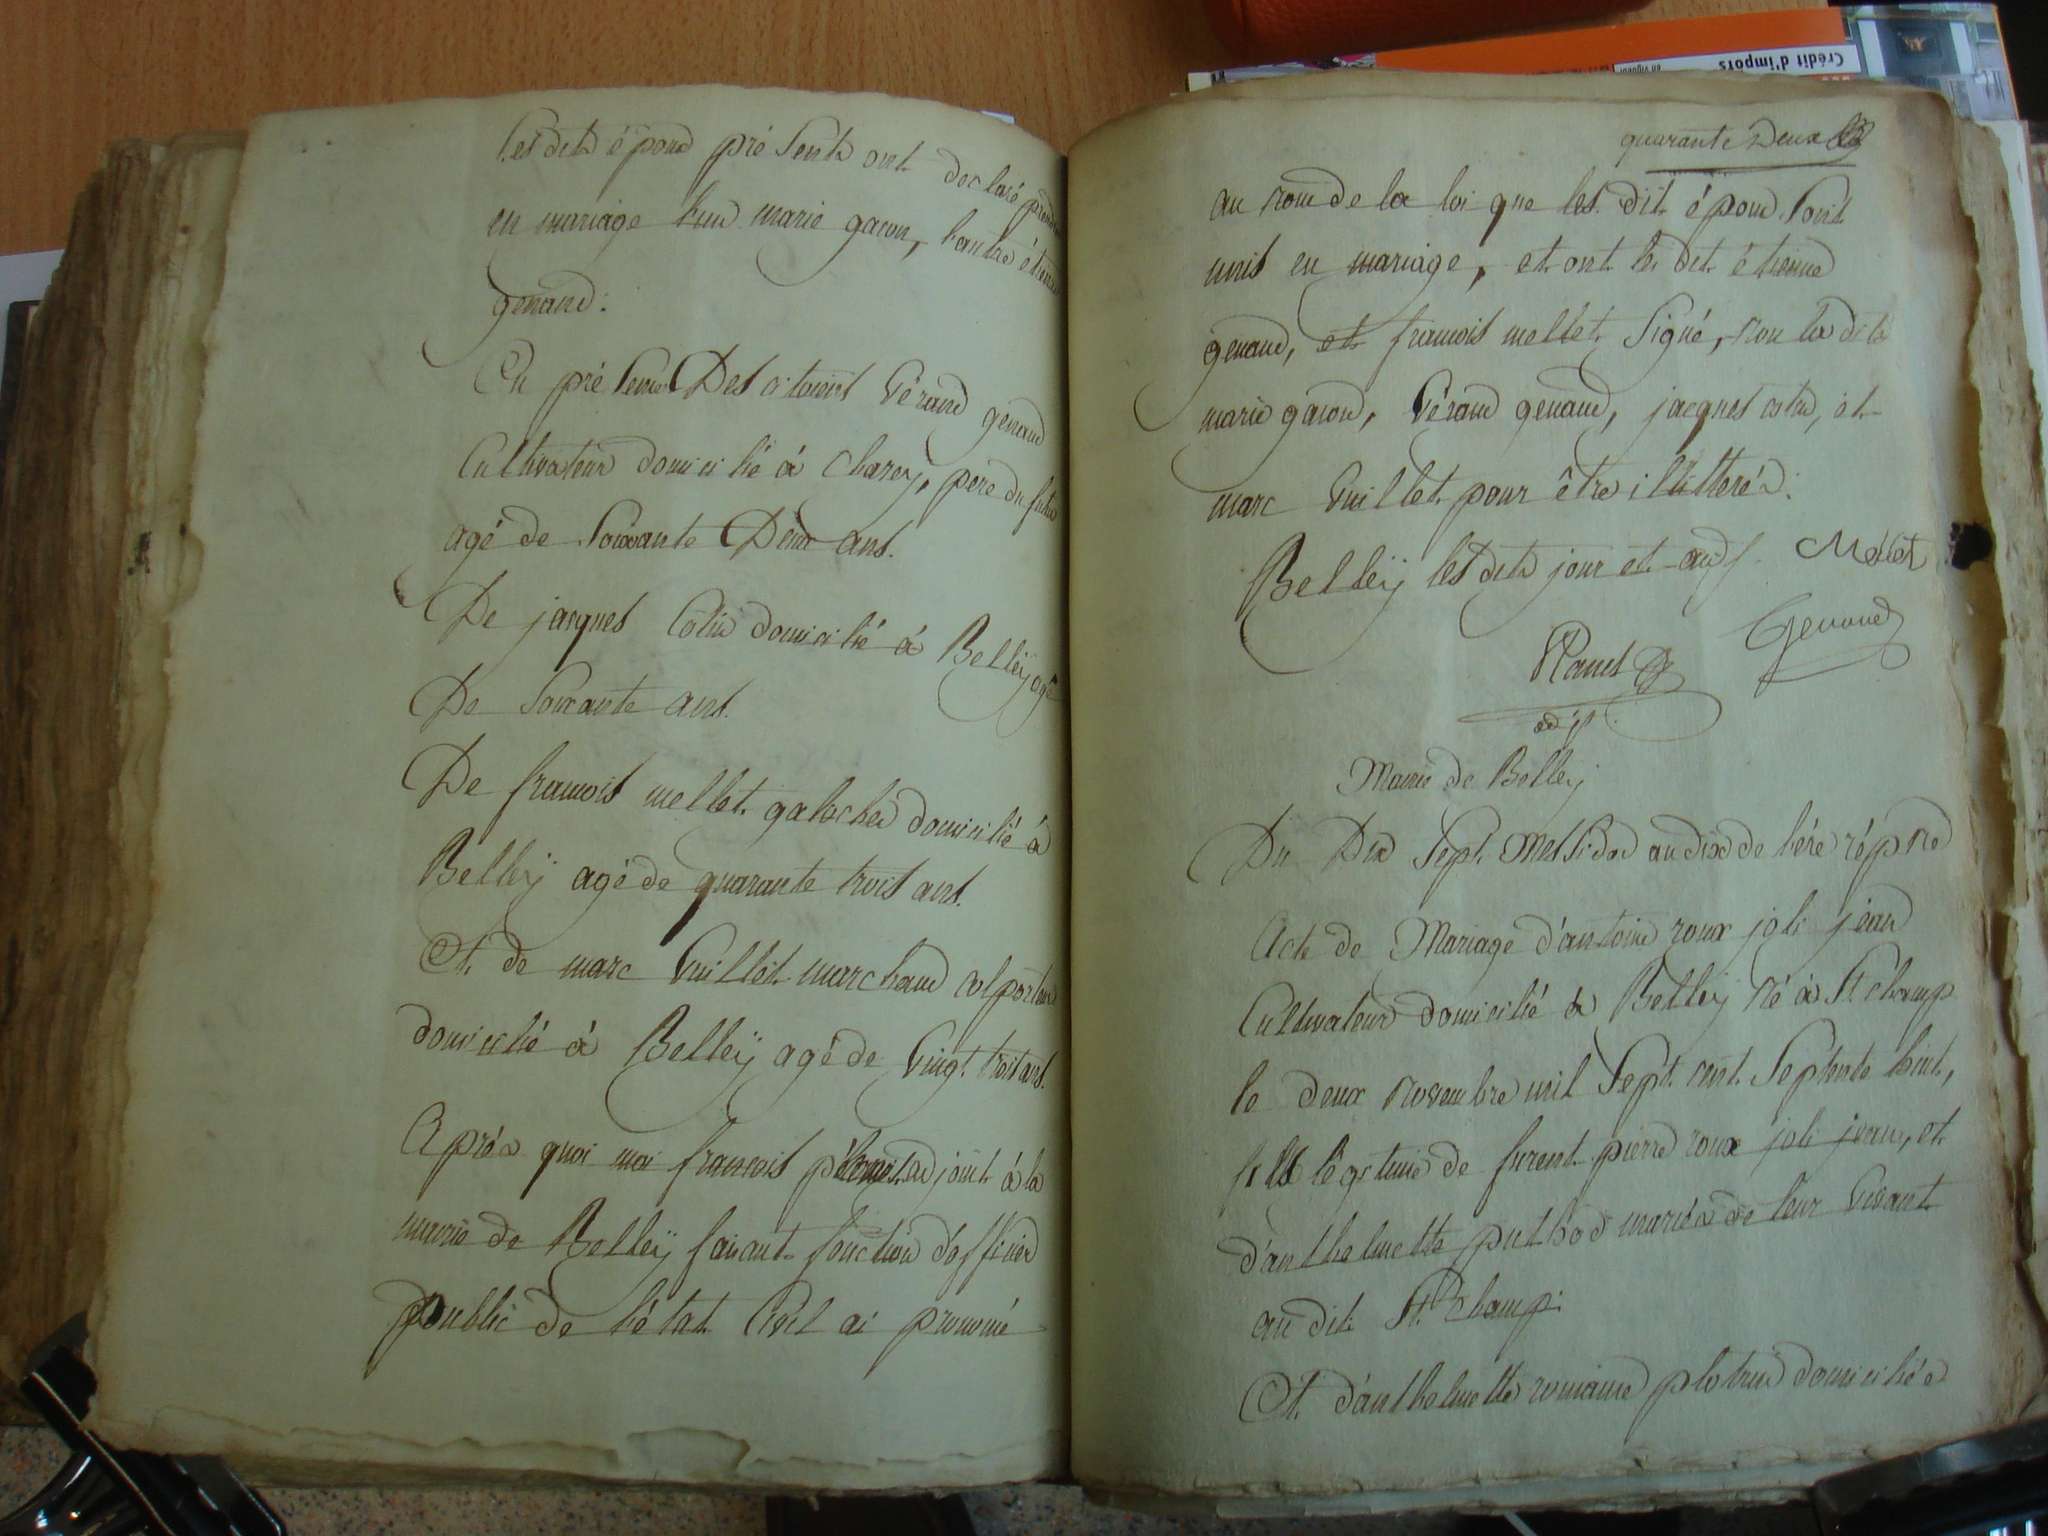 Les dits époux présents ont déclaré prendre
en mariage l'un marie garon, l'autre étienne
genand.
En présence Des citoiens Vérand genand
Cultivateur domicilié à Charey, père du futur
agé de Soixante Deux ans.
De jacques Cotin domicilié à Belleÿ agé
De Soixante ans.
De francois mellet galocher domicilié à
Belleÿ agé de quarante trois ans.
Et de marc Vuillet marchand colporteur
domicilié à Belleÿ agé de Vingt trois ans.
Après quoi moi francois adjoint à la
mairie de Belleÿ faisant fonction d'officier
public de l'état Civil ai prononcé
quarante Deux
au nom de la loi que les dit époux Sont
unis en mariage, et ont les dit étienne
genand, et francois mellet Signé, non la dite
marie garon, Vérand genand, jacques cotin, et
marc Vuillet pour être illitterés.
Belleÿ les dits jour et an
Mellet
Genand
adjt
Mairie de Belley
Du Dix Sept Messidor an dix de l'ère répne
Acte de Mariage d'antoine roux joli jean
Cultivateur domicilié à Belleÿ né à St champ
le deux novembre mil Sept cent Septente huit,
fils légitime de furent pierre roux joli jean, et
d'anthelmette puthod mariés de leur Vivant
au dit St Champ.
Et d'anthelmette romaine plotin domiciliée
Crédit d'impôts
en vigueur